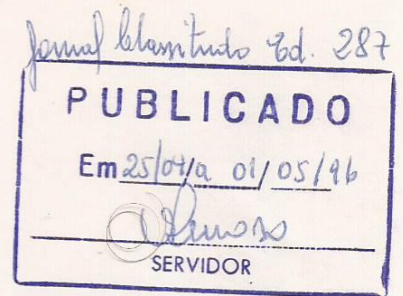 Jornal Classitudo Ed. 287
PUBLICADO
Em 25/04/a 01/05/96
SERVIDOR